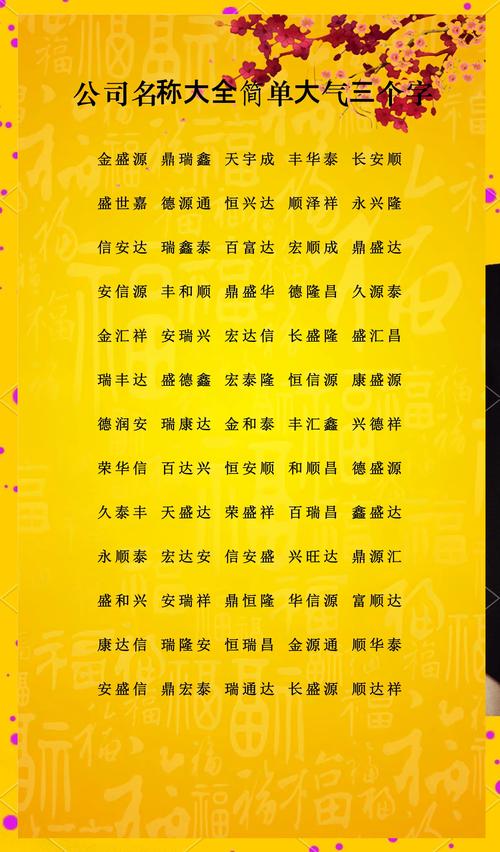 公司名称大全简单大气三个字
金盛源 鼎瑞鑫 天宇成 丰华泰 长安顺
盛世嘉 德源通 恒兴达 顺泽祥 永兴隆
信安达 瑞鑫泰 百富达 宏顺成 鼎盛达
安信源 丰和顺 鼎盛华 德隆昌 久源泰
金汇祥 安瑞兴 宏达信 长盛隆 盛汇昌
瑞丰达 盛德鑫 宏泰隆 恒信源 康盛源
德润安 瑞康达 金和泰 丰汇鑫 兴德祥
荣华信 百达兴 恒安顺 和顺昌 德盛源
久泰丰 天盛达 荣盛祥 百瑞昌 鑫盛达
永顺泰 宏达安 信安盛 兴旺达 鼎源汇
盛和兴 安瑞祥 鼎恒隆 华信源 富顺达
康达信 瑞隆安 恒瑞昌 金源通 顺华泰
安盛信 鼎宏泰 瑞通达 长盛源 顺达祥